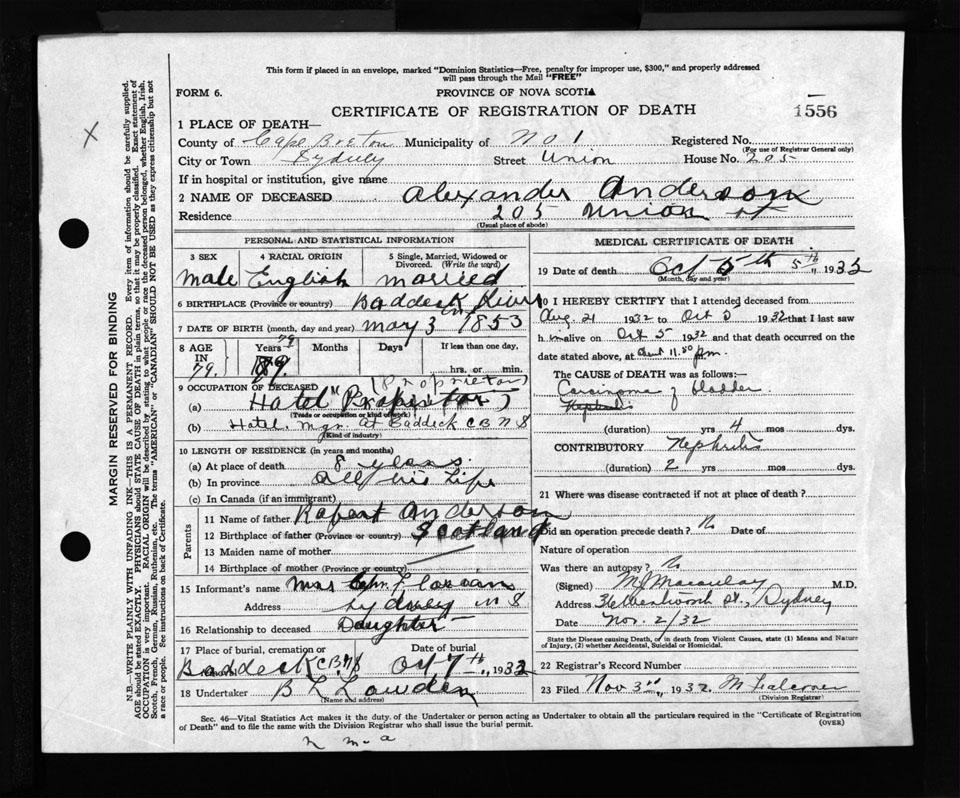 This form if placed in an envelope, marked "Dominion Statistics—Free, penalty for improper use, $300," and properly addressed
will pass through the Mail "FREE"
FORM 6.
PROVINCE OF NOVA SCOTIA
CERTIFICATE OF REGISTRATION OF DEATH
1556
1 PLACE OF DEATH—
County of Cape Breton Municipality of No 1 Registered No.
(For use of Registrar General only)
City or Town Sydney Street Union House No. 205
If in hospital or institution, give name
2 NAME OF DECEASED Alexander Anderson
Residence 205 Union st
(Usual place of abode)
PERSONAL AND STATISTICAL INFORMATION
3 SEX 4 RACIAL ORIGIN 5 Single, Married, Widowed or
Divorced. (Write the word)
Male English married
6 BIRTHPLACE (Province or country) Baddeck River
7 DATE OF BIRTH (month, day and year) May 3 1853
8 AGE IN Years Months Days If less than one day,
79. 79 hrs. or min.
9 OCCUPATION OF DECEASED (Proprietor)
(a) Hotel
(Trade or occupation or kind of work)
(b) Hotel. Mgr. at Baddeck C B N S
(Kind of industry)
10 LENGTH OF RESIDENCE (in years and months)
(a) At place of death 8 years
(b) In province All his Life
(c) In Canada (if an immigrant)
Parents
11 Name of father Robert Anderson
12 Birthplace of father (Province or country) Scotland
13 Maiden name of mother
14 Birthplace of mother (Province or country)
15 Informant's name Mrs
Address Sydney N S
16 Relationship to deceased Daughter
17 Place of burial, cremation or removal Date of burial
Baddeck C B N S Oct 7th, 1932
18 Undertaker B L Lowden
(Name and address)
MEDICAL CERTIFICATE OF DEATH
19 Date of death Oct 5th 5th, 1932
(Month, day and year)
20 I HEREBY CERTIFY that I attended deceased from
Aug. 21 1932 to Oct 5 1932 that I last saw
him alive on Oct 5 1932 and that death occurred on the
date stated above, at about 11.50 pm.
The CAUSE of DEATH was as follows:—
Carcinoma of bladder
(duration) yrs 4 mos dys.
CONTRIBUTORY Nephritis
(duration) 2 yrs mos dys.
21 Where was disease contracted if not at place of death?
Did an operation precede death? No Date of
Nature of operation
Was there an autopsy? No
(Signed) M. Macaulay M.D.
Address St., Sydney
Date Nov. 2/32
State the Disease causing Death, or in death from Violent Causes, state (1) Means and Nature
of Injury, (2) whether Accidental, Suicidal or Homicidal.
22 Registrar's Record Number
23 Filed Nov 3rd, 1932.
(Division Registrar)
Sec. 46—Vital Statistics Act makes it the duty of the Undertaker or person acting as Undertaker to obtain all the particulars required in the "Certificate of Registration
of Death" and to file the same with the Division Registrar who shall issue the burial permit.
(OVER)
MARGIN RESERVED FOR BINDING
N.B.—WRITE PLAINLY WITH UNFADING INK—THIS IS A PERMANENT RECORD. Every item of information should be carefully supplied.
AGE should be stated EXACTLY. PHYSICIANS should STATE CAUSE OF DEATH in plain terms, so that it may be properly classified. Exact statement of
OCCUPATION is very important. RACIAL ORIGIN will be described by stating to what people or race the deceased person belonged, whether English, Irish,
Scotch, French, German, Russian, Ruthenian, etc. The terms "AMERICAN" or "CANADIAN" SHOULD NOT BE USED as they express citizenship but not
a race or people. See instructions on back of Certificate.